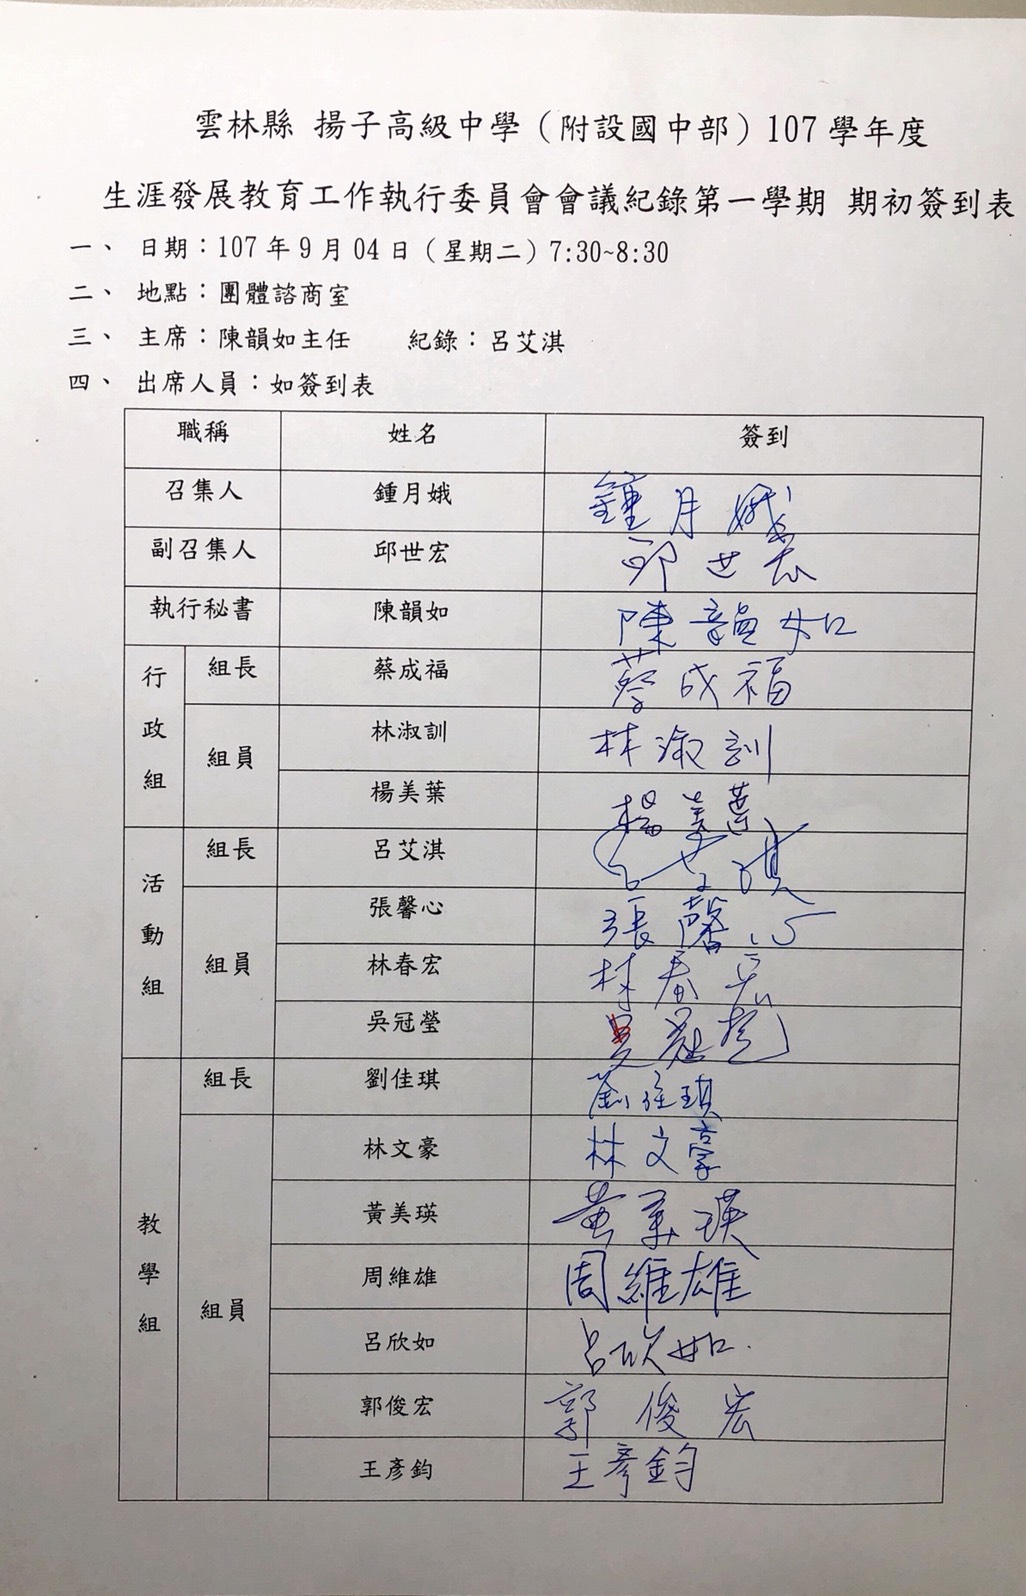 雲林縣 揚子高級中學（附設國中部）107學年度
生涯發展教育工作執行委員會會議紀錄第一學期 期初簽到表
一、 日期：107年9月04日（星期二）7:30~8:30
二、 地點：團體諮商室
三、 主席：陳韻如主任 紀錄：呂艾淇
四、 出席人員：如簽到表
職稱 姓名 簽到
召集人 鍾月娥 鍾月娥
副召集人 邱世宏 邱世宏
執行秘書 陳韻如 陳韻如
行政組 組長 蔡成福 蔡成福
組員 林淑訓 林淑訓
楊美葉 楊美葉
活動組 組長 呂艾淇 呂艾淇
組員 張馨心 張馨心
林春宏 林春宏
吳冠瑩 吳冠瑩
教學組 組長 劉佳琪 劉佳琪
組員 林文豪 林文豪
黃美瑛 黃美瑛
周維雄 周維雄
呂欣如 呂欣如
郭俊宏 郭俊宏
王彥鈞 王彥鈞